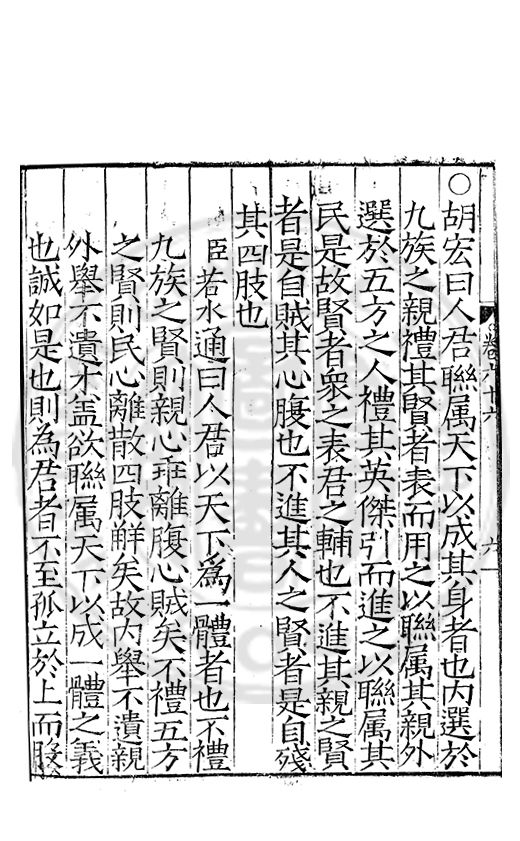 卷六十六
六
○胡宏曰人君聯属天下以成其身者也内選於
九族之親禮其賢者表而用之以聯属其親外
選於五方之人禮其英傑引而進之以聯属其
民是故賢者衆之表君之輔也不進其親之賢
者是自賊其心腹也不進其人之賢者是自殘
其四肢也
臣若水通曰人君以天下爲一體者也不禮
九族之賢則親心乖離腹心賊矣不禮五方
之賢則民心離散四肢觧矣故内舉不遺親
外舉不遺才盖欲聯属天下以成一體之義
也誠如是也則為君者不至孤立於上而股